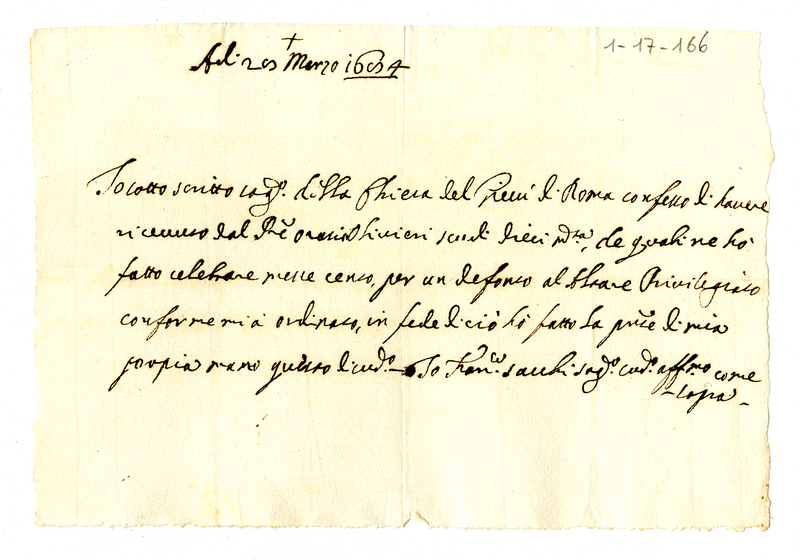 1-17-166
Adi 20 Marzo 1684
Io sotto scritto sag.º della Chiesa del Giesù di Roma confesso di havere
ricevuto dal Pre Oratio Olivieri scudi dieci mta, de quali ne hò
fatto celebrare messe cento, per un defonto al Altare Privilegiato
conforme mi à ordinato, in fede di ciò hò fatto la pnte di mia
propia mano questo dì cud.º Io Fran.co Sacchi sag.º cud.º affmo come
sopra